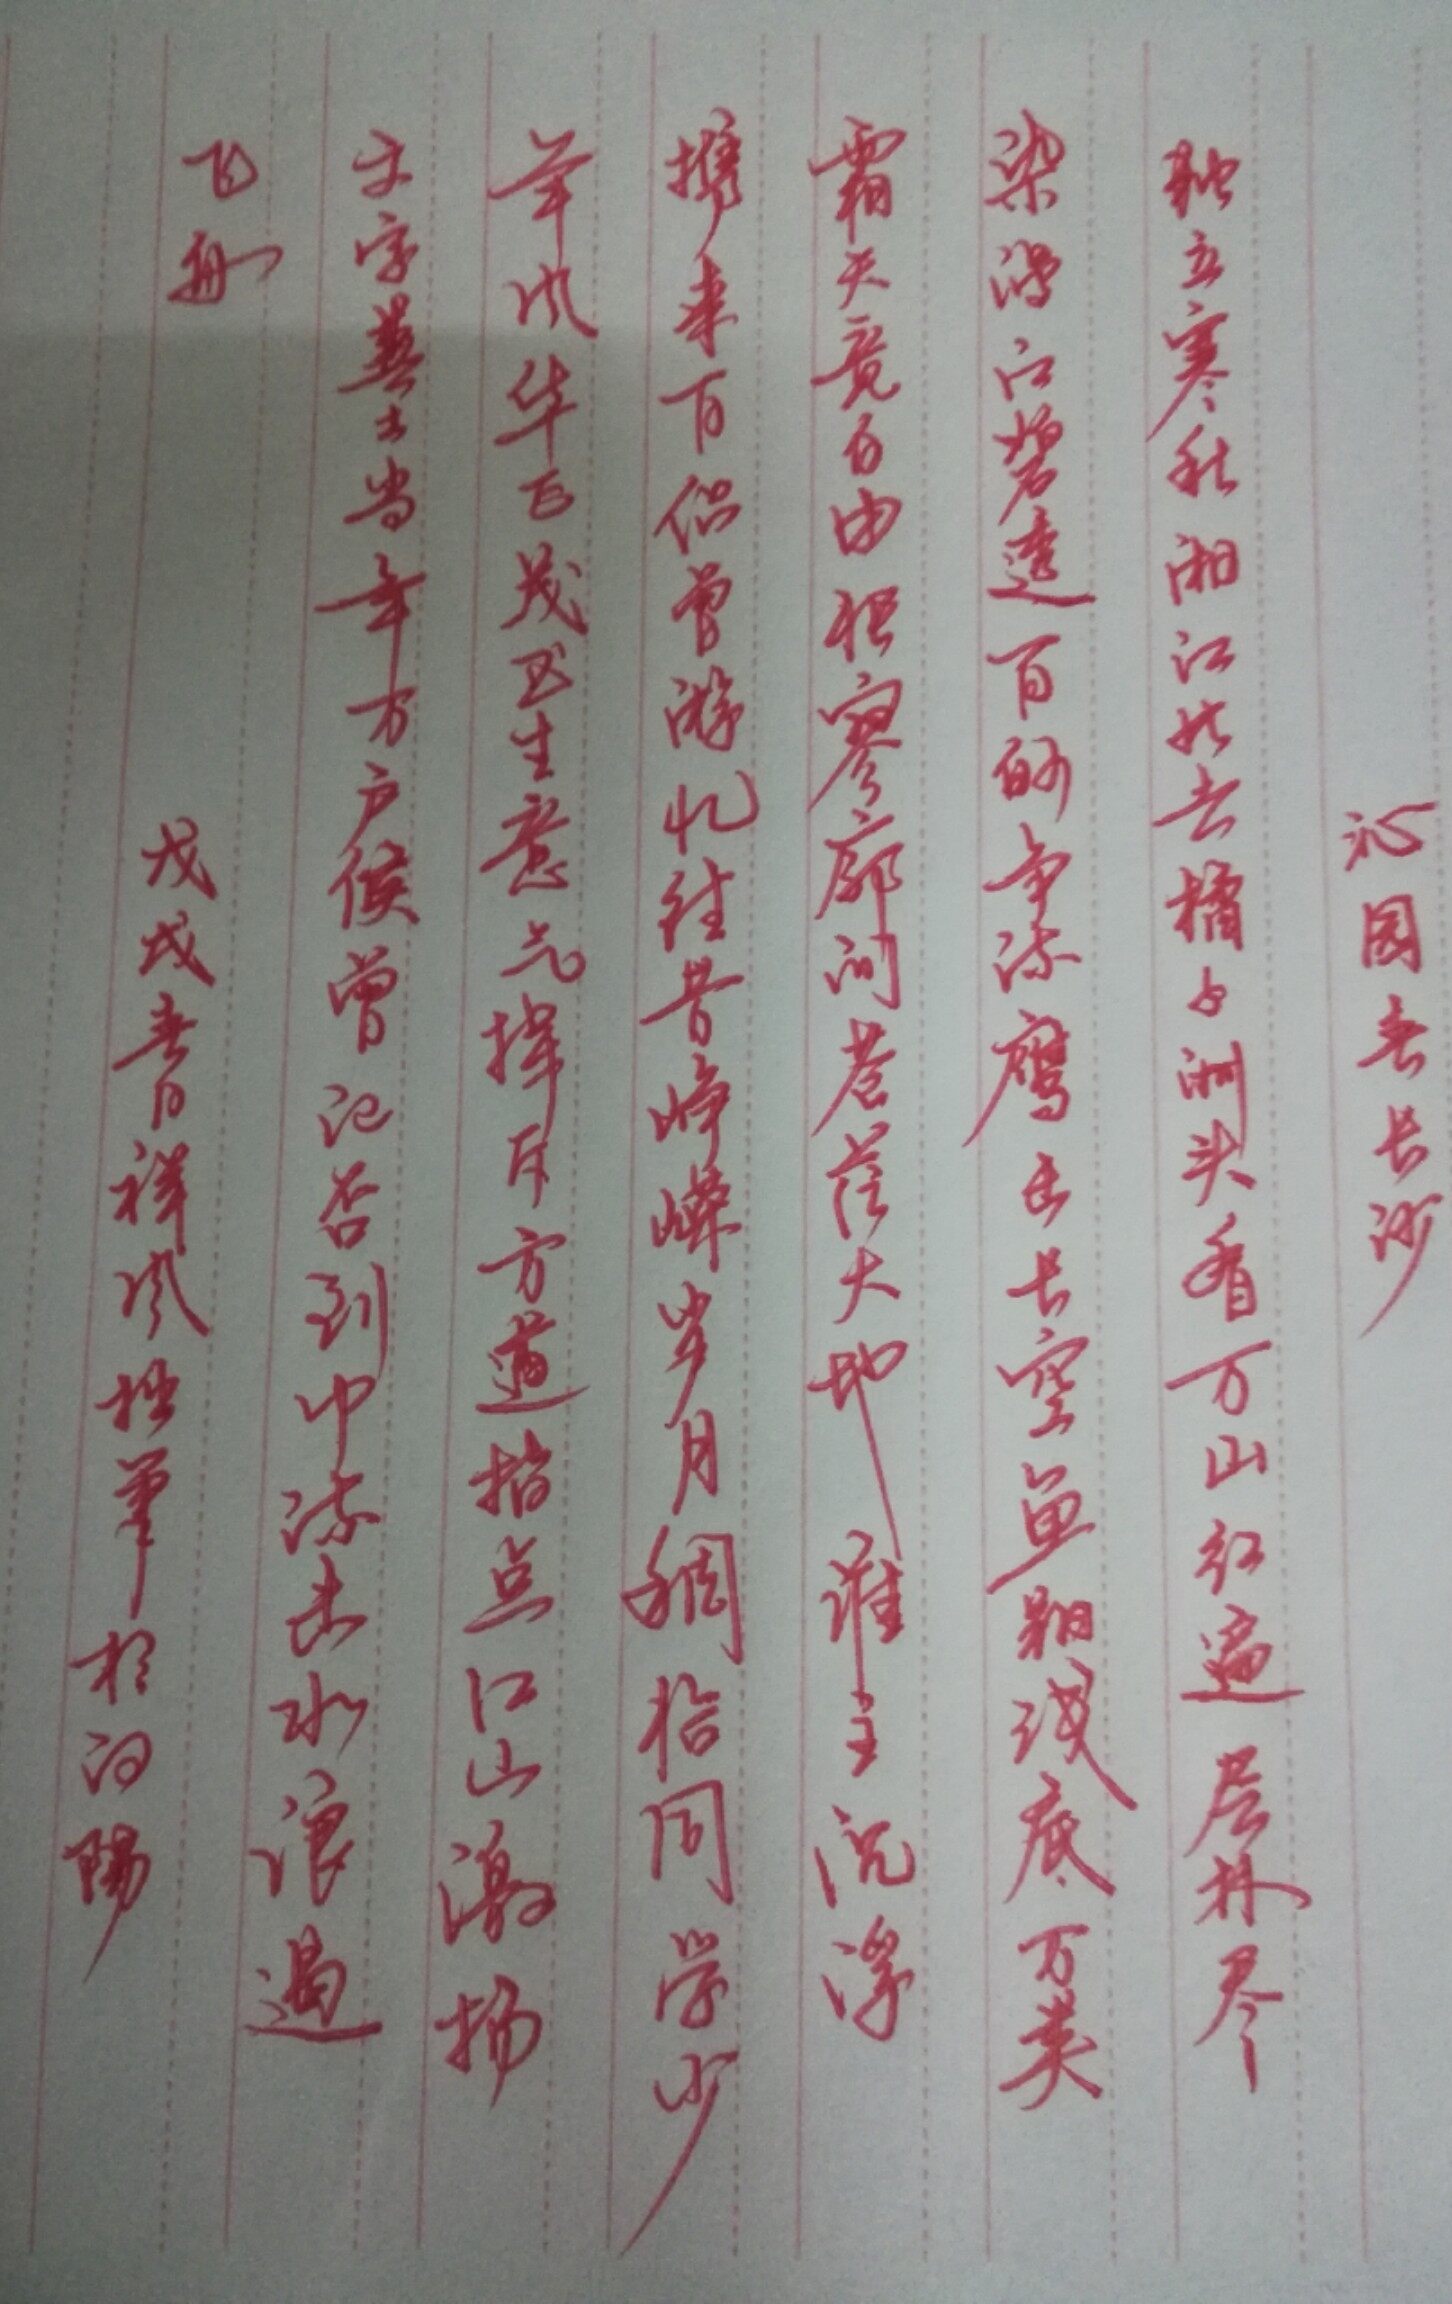 沁园春长沙
独立寒秋湘江北去橘子洲头看万山红遍层林尽
染漫江碧透百舸争流鹰击长空鱼翔浅底万类
霜天竞自由怅寥廓问苍茫大地谁主沉浮
携来百侣曾游忆往昔峥嵘岁月稠恰同学少
年风华正茂书生意气挥斥方遒指点江山激扬
文字粪土当年万户侯曾记否到中流击水浪遏
飞舟
戊戌春日祥风拙筆於陽